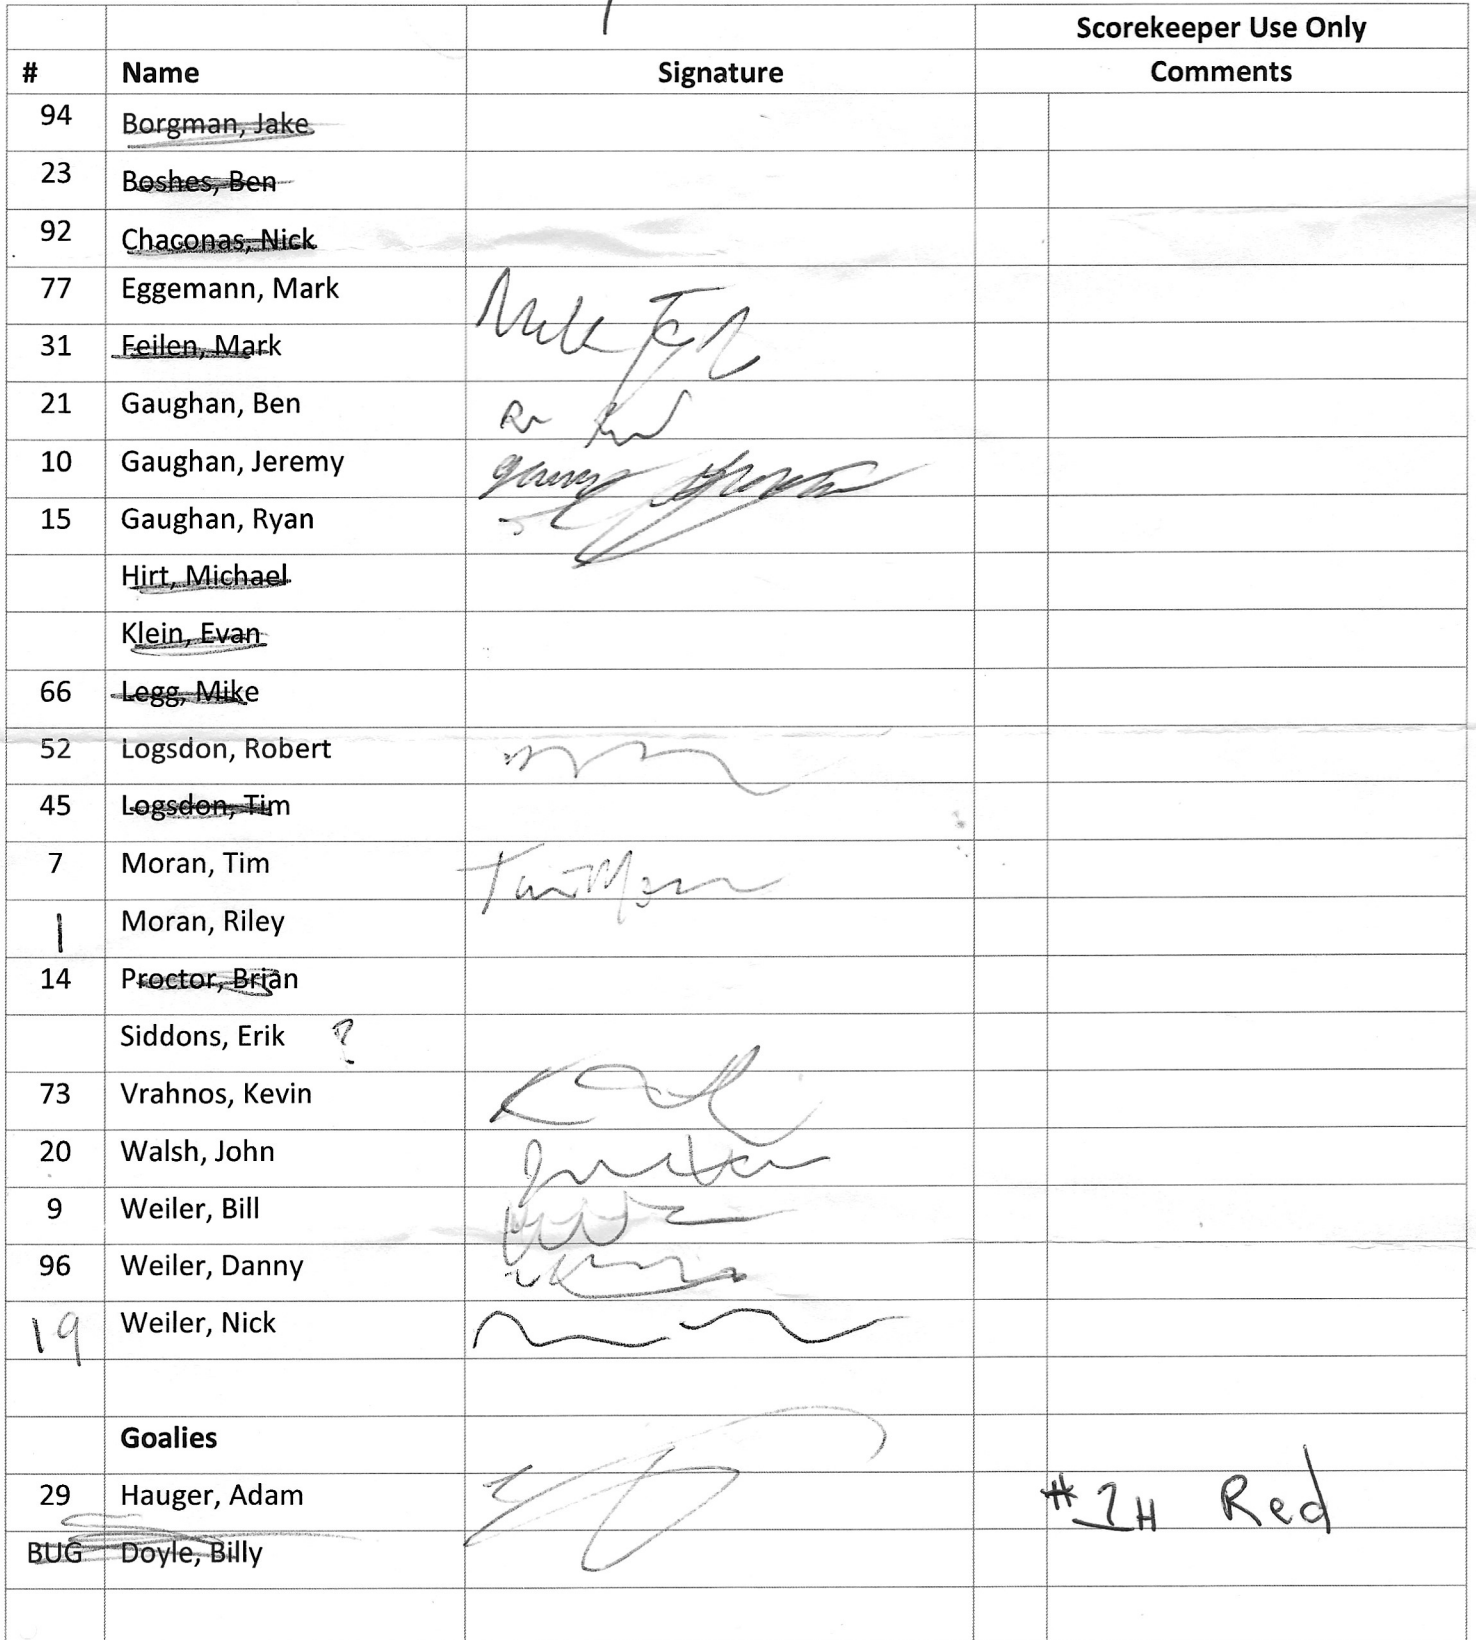 Scorekeeper Use Only
# Name Signature Comments
94 Borgman, Jake
23 Boshes, Ben
92 Chaconas, Nick
77 Eggemann, Mark
31 Feilen, Mark
21 Gaughan, Ben
10 Gaughan, Jeremy
15 Gaughan, Ryan
Hirt, Michael
Klein, Evan
66 Legg, Mike
52 Logsdon, Robert
45 Logsdon, Tim
7 Moran, Tim Tim Moran
1 Moran, Riley
14 Proctor, Brian
Siddons, Erik ?
73 Vrahnos, Kevin
20 Walsh, John
9 Weiler, Bill
96 Weiler, Danny
19 Weiler, Nick
Goalies
29 Hauger, Adam # Red
BUG Doyle, Billy